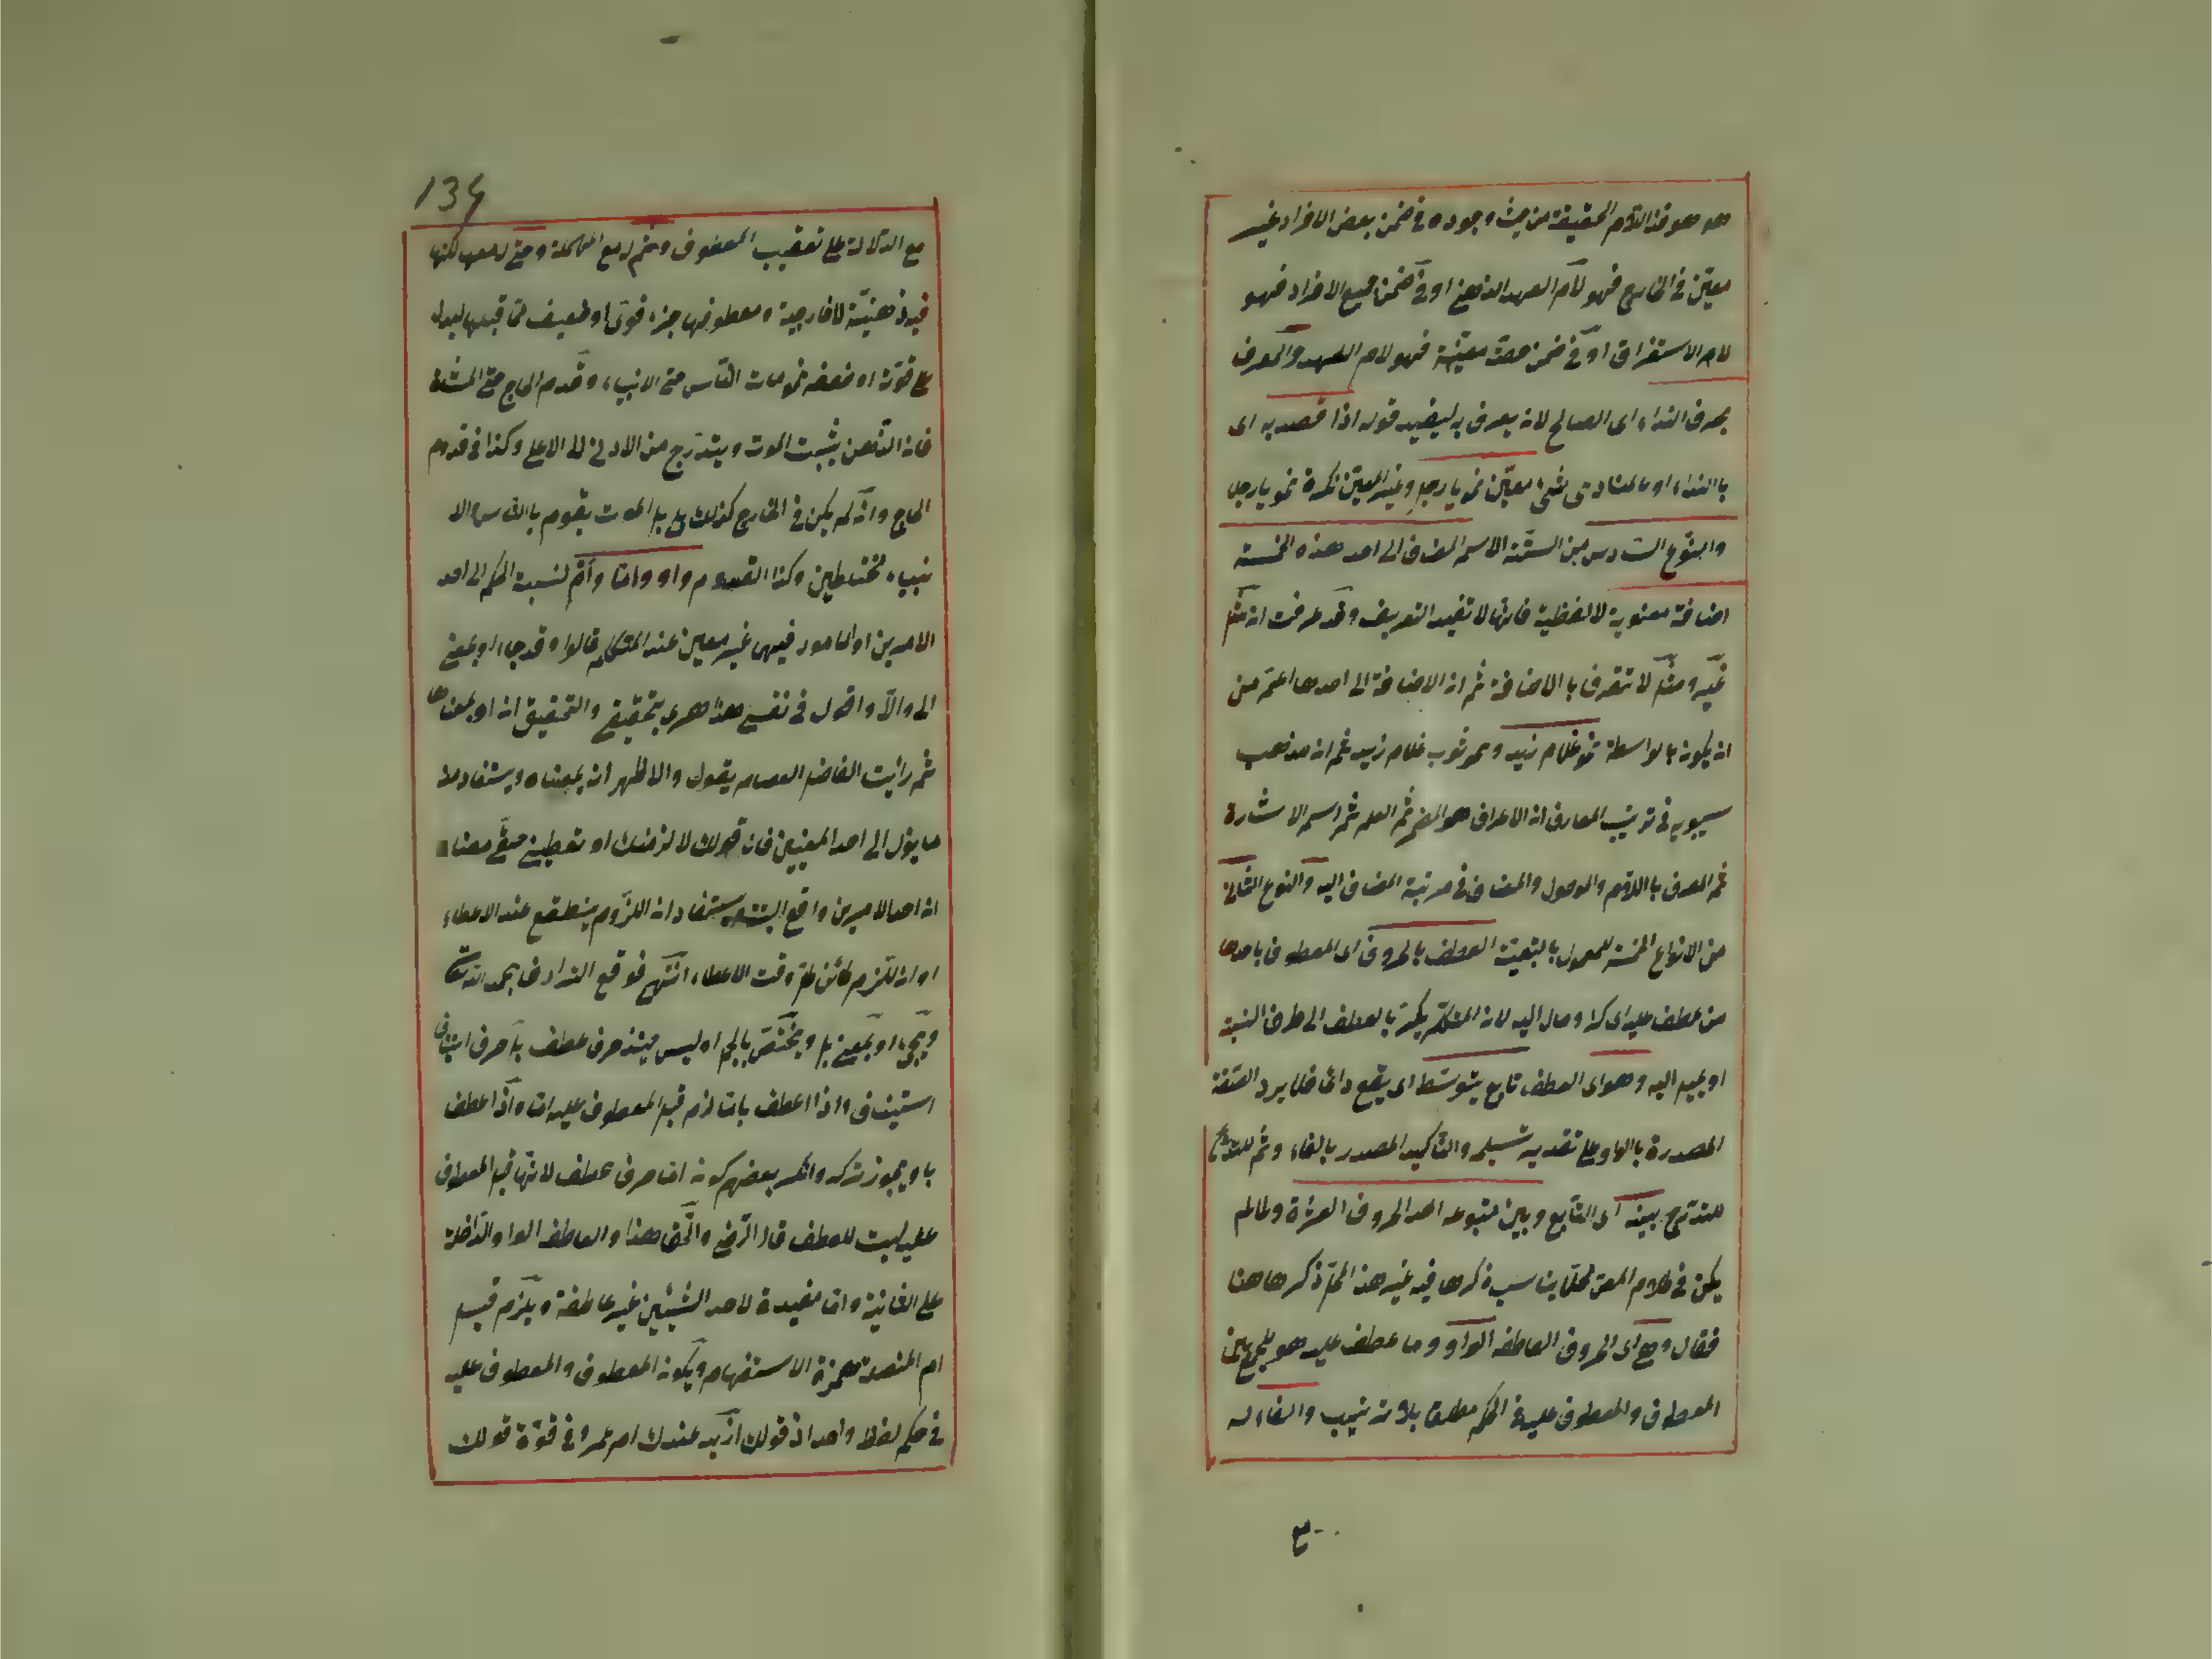 هو هو فذا اللام الحقيقة من حيث وجوده في ضمن بعض الافراد غير
معيّن في الخارج فهو لام العهد الذهني او في ضمن جميع الافراد فهو
لام الاستغراق او في ضمن حصة معيّنة فهو لام العهد والمعرف
بحرف النداء اى الصالح لان يعرف به ليفيد قوله اذا قصد به اى
بالنداء او بالمنادى شئ معيّن نحو يا رجل وغير المعيّن نكرة نحو يا رجلا
والنوع السّادس من الستّة الاسم المضاف الى احد هذه الخمسة
اضافة معنوية لا لفظية فانها لا تفيد التعريف وقد عرفت ان مثل
غير ومثل لا تتعرف بالاضافة ثم ان الاضافة الى احدها اعم من
ان يكون بالواسطة نحو غلام زيد ونحو ثوب غلام زيد ثم ان مذهب
سيبويه في ترتيب المعارف ان الاعراف هو المضمر ثم العلم ثم اسم الاشارة
ثم المعرف باللام والموصول والمضاف في مرتبة المضاف اليه والنوع الثانى
من الانواع الخمسة للمعمول بالتبعيّة العطف بالحروف اى المعطوف باحدها
من عطف عليه اى كرّ ومال اليه لان المتكلم يكرّ بالعطف الى طرف النسبة
او يميل اليه وهو اى العطف تابع يتوسّط اى يقع دائما فلا يرد الصّفة
المصدرة بالواو على تقدير تسليمه والتأكيد المصدر بالفاء وثم للتدرّج
للتدرّج بينه اى التّابع وبين متبوعه احد الحروف العشرة ولما لم
يكن في كلام المص محل يناسب ذكرها فيه غير هذا المحل ذكرها هنا
فقال وهى اى الحروف العاطفة الواو وما عطف عليه هو للجمع بين
المعطوف والمعطوف عليه في الحكم مطلقا بلا ترتيب والفاء له
ع
134
مع الدّلالة على تعقيب المعطوف وثم له مع المهملة وحتى لمعها لكنها
فيه ذهنيّة لا خارجية ومعطوفها جزء قوى او ضعيف ممّا قبلها ليدل
على قوّته او ضعفه نحو مات النّاس حتى الانبياء وقدم الحاج حتى المشاة
فان الذّهن يثبت الموت ويتدرّج من الادنى الى الاعلى وكذا في قدوم
الحاج وانّه لم يكن في الخارج كذلك بل الموت يقوم بالناس والا
نبياء مختلطين وكذا القدوم واو وامّا وام لنسبة الحكم الى احد
الامرين او الامور فيهن غير معين عند المتكلم قالوا وقد جاء او بمعنى
الى والّا واقول في نفسى هذا مجرى بتحقيقى والتحقيق ان او بمعناها
ثم رأيت الفاضل العصام يقول والاظهر ان بمعناه ويستفاد منه
ما يؤل الى احد المعنيين فان قولك لا لزمنك او تعطينى حقّى معناه
ان احد الامرين واقع البتة يستفاد ان اللّزوم ينقطع عند الاعطاء
او ان اللّزوم كائن وقت الاعطاء انتهى فوقع التوارد بحمد الله تعالى
ويجئ او بمعنى بل ويختصّ بالجملة وليس حينئذ حرف عطف بل حرف استيناف
استيناف واذا اعطف بامّا لزم قبل المعطوف عليه امّا واذا عطف
باو يجوز تركه وانكر بعضهم كون امّا حرف عطف لانها قبل المعطوف
عليه ليست للعطف قال الرّضى والحق هذا والعاطف الواو الدّاخلة
على الثانية وامّا مفيدة لاحد الشيئين غير عاطفة ويلزم قبل
ام المتصلة همزة الاستفهام ويكون المعطوف والمعطوف عليه
في حكم لفظ واحد اذ قولك ازيد عندك ام عمرو في قوّة قولك